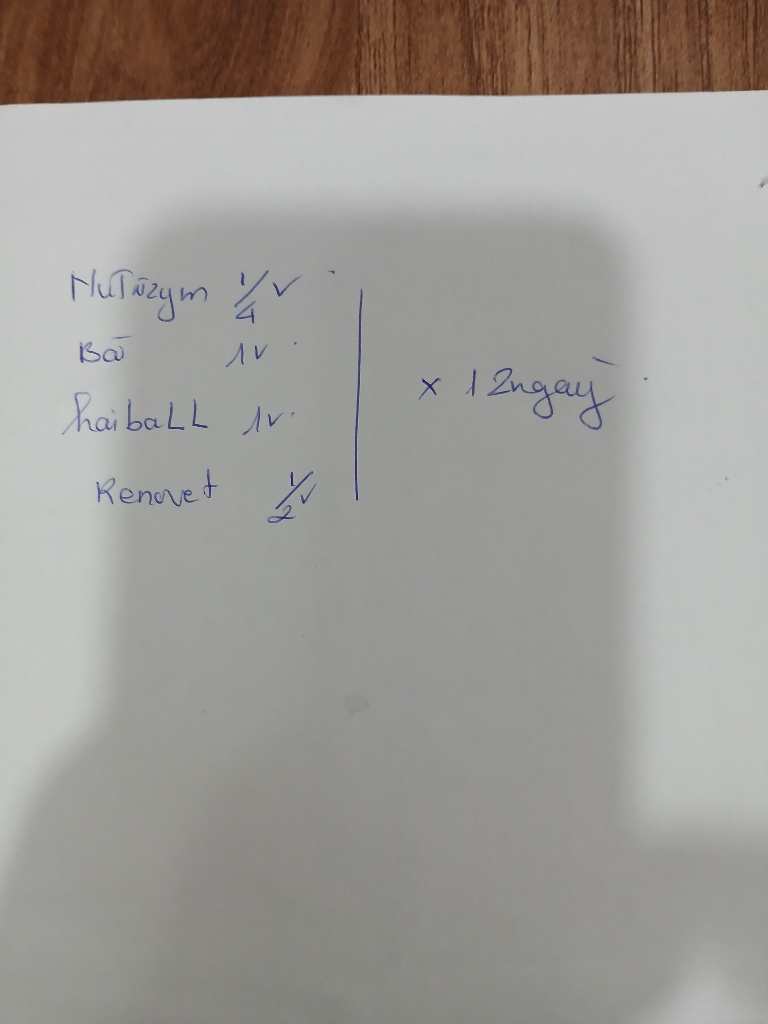 Nutrizym 1/4 v
Bổ 1v
hairball 1v
Renovet 1/2 v
x 12 ngày